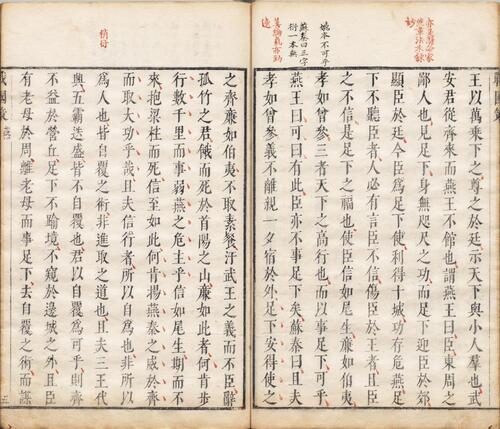 亦是辯家
妙
姚本不可乎
蘇秦曰三字
衍一本無
王以萬乘下之尊之於廷示天下與小人羣也武
安君從齊來而燕王不館也謂燕王曰臣東周之
鄙人也見足下身無咫尺之功而足下迎臣於郊
顯臣於廷今臣爲足下使利得十城功存危燕足
下不聽臣者人必有言臣不信傷臣於王者且臣
之不信是足下之福也使臣信如尾生廉如伯夷
孝如曾參三者天下之高行也而以事足下可乎
燕王曰可曰有此臣亦不事足下矣蘇秦曰且夫
孝如曾參義不離親一夕宿於外足下安得使之
之齊廉如伯夷不取素餐汙武王之義而不臣辭
孤竹之君餓而死於首陽之山廉如此者何肯步
行數千里而事弱燕之危主乎信如尾生期而不
來抱梁柱而死信至如此何肯揚燕秦之威於齊
而取大功乎哉且夫信行者所以自爲也非所以
爲人也皆自覆之術非進取之道也且夫三王代
興五霸迭盛皆不自覆也君以自覆爲可乎則齊
不益於營丘足下不踰境不窺於邊城之外且臣
有老母於周離老母而事足下去自覆之術而謀
五